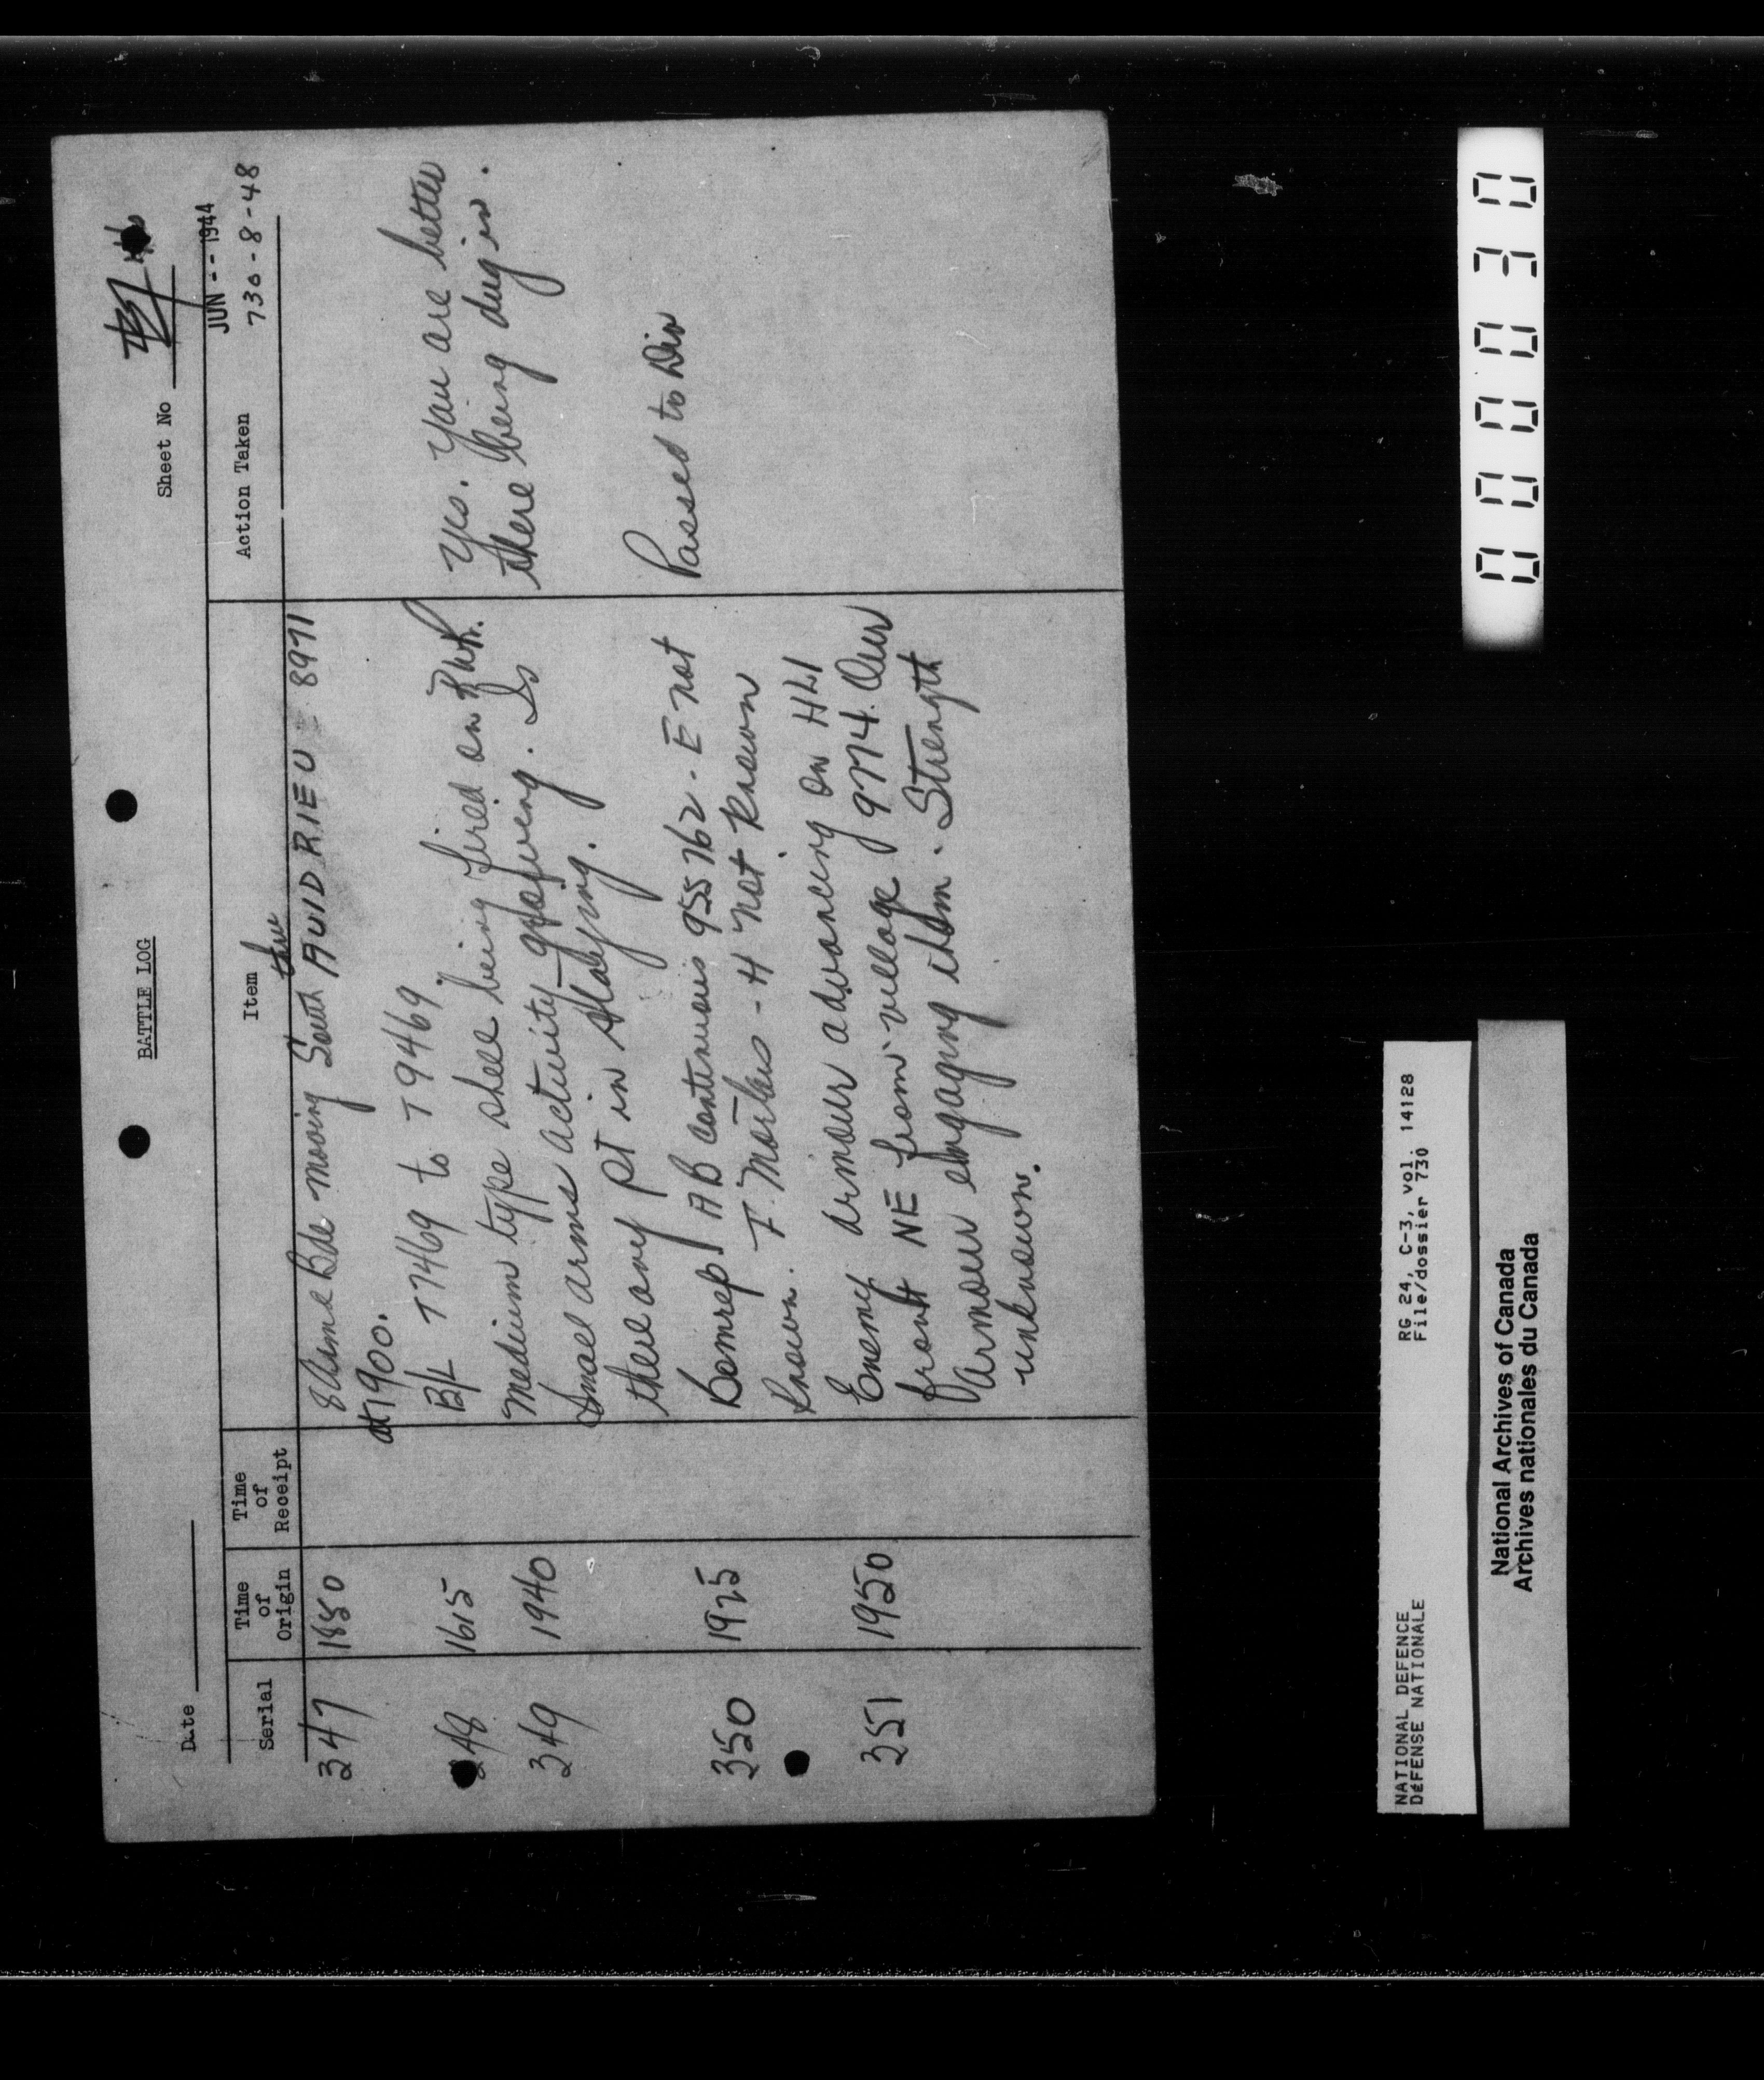 BATTLE LOG
Date
Sheet No
JUN -- 1944
730-8-48
Serial
Time of Origin
Time of Receipt
Item
Action Taken
347 1850 8 Armd Bde moving South thru AUDRIEU 8971
at 1900.
348 1615 B/L T77469 to T79469
349 1940 Medium type shell being fired on RWR.
Small arms activity growing. Is
there any pt in staying.
Yes. You are better
there being dug in.
350 1925 Bomrep AB continuous 955762. E not
F. Mortars - H not known
known.
Passed to Div
351 1950 Enemy armour advancing on HLI
front NE from village 9774. Our
armour engaging them. Strength
unknown.
000030
NATIONAL DEFENCE RG 24, C-3, vol. 14128
DÉFENSE NATIONALE File/dossier 730
National Archives of Canada
Archives nationales du Canada